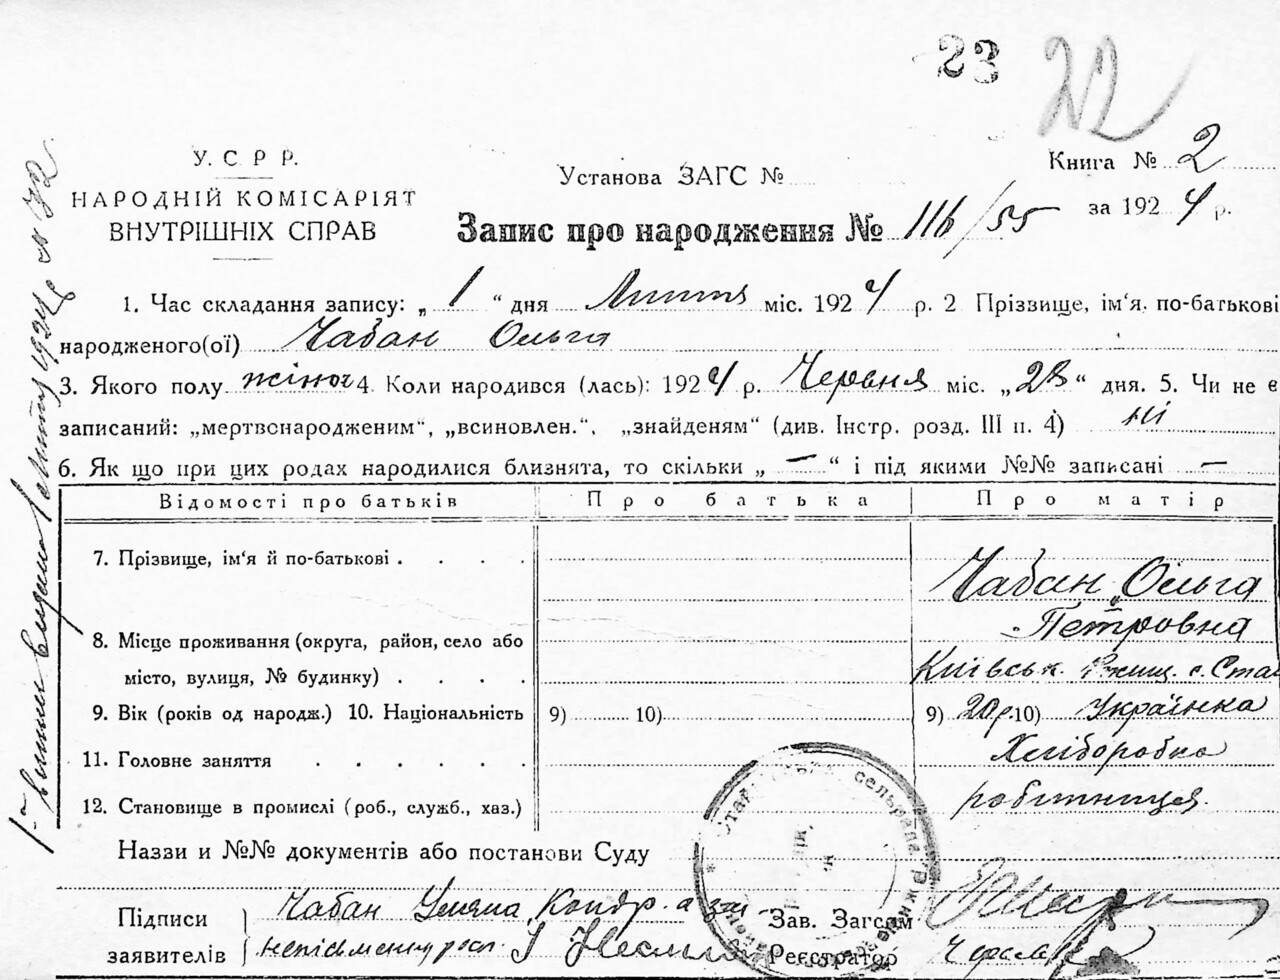 23 22
У. С Р Р.
НАРОДНІЙ КОМІСАРІЯТ
ВНУТРІШНІХ СПРАВ
Установа ЗАГС №
Книга № 2
за 1924 р.
Запис про народження № 116/55
1. Час складання запису: „ 1 “ дня Липня міс. 1924 р. 2 Прізвище, ім'я, по-батькові
народженого(ої) Чабан Ольга
3. Якого полу жіноч 4. Коли народився (лась): 1924 р. Червня міс. „ 28 “ дня. 5. Чи не є
записаний: „мертвонародженим“, „всиновлен.“, „знайденям“ (див. Інстр. розд. III п. 4) ні
6. Як що при цих родах народилися близнята, то скільки „ — “ і під якими №№ записані —
Відомості про батьків Про батька Про матір
7. Прізвище, ім'я й по-батькові . . . . Чабан Ольга
Петровна
8. Місце проживання (округа, район, село або
місто, вулиця, № будинку) . . . . Київськ. Ржищ. с. Ста
9. Вік (років од народж.) 10. Національність 9) 10) 9) 20 р. 10) Українка
11. Головне заняття . . . . . . Хліборобка
12. Становище в промислі (роб., служб., хаз.) робітниця.
Назви и №№ документів або постанови Суду
Підписи заявителів Чабан Уляна Кондр. а за
неписьменну росп.
Зав. Загсом
Реєстратор